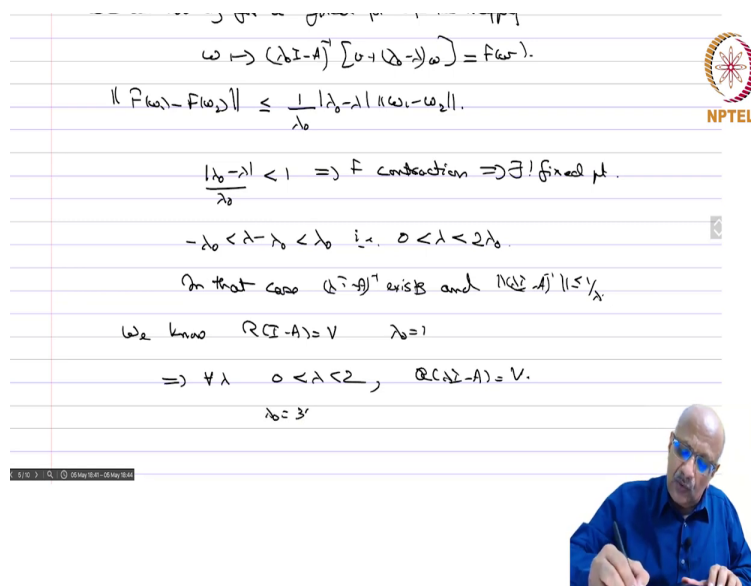 ω ↦ (λ₀I-A)⁻¹ [v+(λ₀-λ)ω] = F(ω).
NPTEL
‖F(ω₁)-F(ω₂)‖ ≤ 1/λ₀ |λ₀-λ| ‖ω₁-ω₂‖.
|λ₀-λ|/λ₀ < 1 => F contraction => ∃! fixed pt.
-λ₀ < λ-λ₀ < λ₀ i.e. 0 < λ < 2λ₀.
In that case (λI-A)⁻¹ exists and ‖(λI-A)⁻¹‖ ≤ 1/λ.
We know R(I-A) = V λ₀=1
=> ∀ λ 0 < λ < 2, R(λI-A) = V.
λ₀ = 3
5/10 05 May 18:41-05 May 18:44